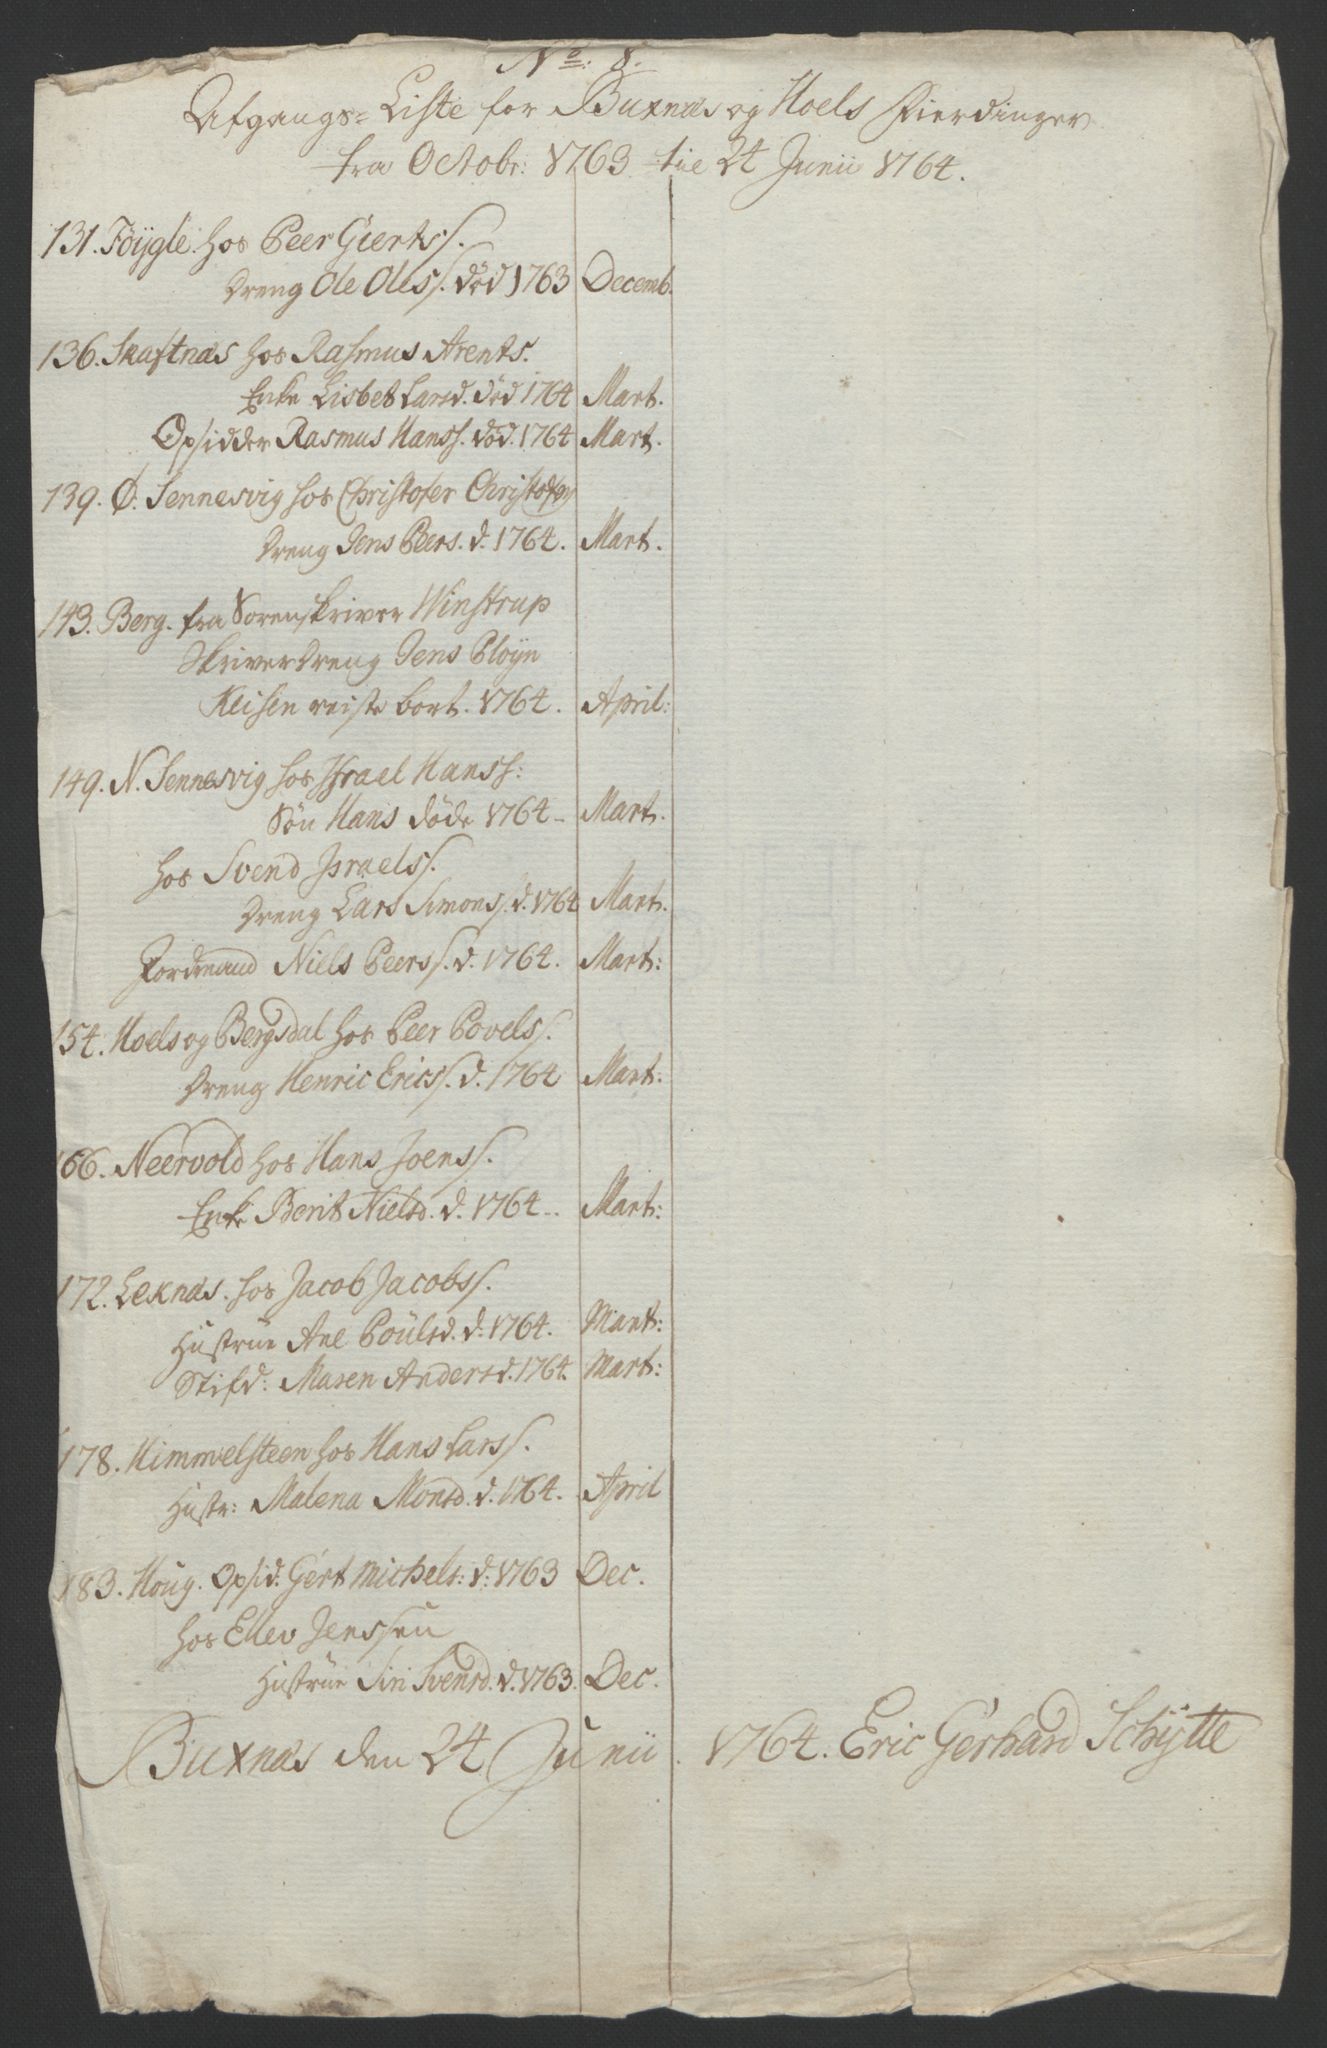 No: 8.
Afgangs= Liste for Buxnæs og Hoels Fierdinger
fra Octobr: 1763 til 24 Junii 1764.
131. Föygle hos Peer Giertss.
Dreng Ole Oless. död 1763 Decemb.
136. Skaftnæs hos Rasmus Arents.
Enke Lisbet Larsd. död 1764 Mart.
Opsidder Rasmus Hanss. död. 1764 Mart.
139. Ø. Sennesvig hos Christofer Christofers
Dreng Jens Peers. d. 1764. Mart.
143. Berg. fra Sorenskriver Winstrup
Skriverdreng Jens Ployn
Keisen reiste bort. 1764. April:
149. N. Sennesvig hos Israel Hanss:
Sön Hans döde 1764 - Mart.
hos Svend Israelss.
Dreng Lars Simonss. d. 1764 Mart.
Jordmand Niels Peerss. d. 1764. Mart:
154. Hoels og Bergsdal hos Peer Povelss.
Dreng Henric Ericss. d. 1764 Mart:
166. Neervold hos Hans Joenss.
Enke Berit Nielsd. d. 1764.. Mart:
172. Leknæs. hos Jacob Jacobss.
Hustrue Ane Poulsd. d. 1764. Mart:
Stifd: Maren Andersd. 1764. Mart:
178. Himmelsteen hos Hans Larss.
Hustr: Malena Monsd. d. 1764. April
183. Houg. Opsid. Gert Michels: d: 1763 Dec.
hos Ellev Jenssen
Hustrue Siri Svensd. d. 1763. Dec.
Buxnæs den 24 Junii 1764. Eric Gerhard Schytte